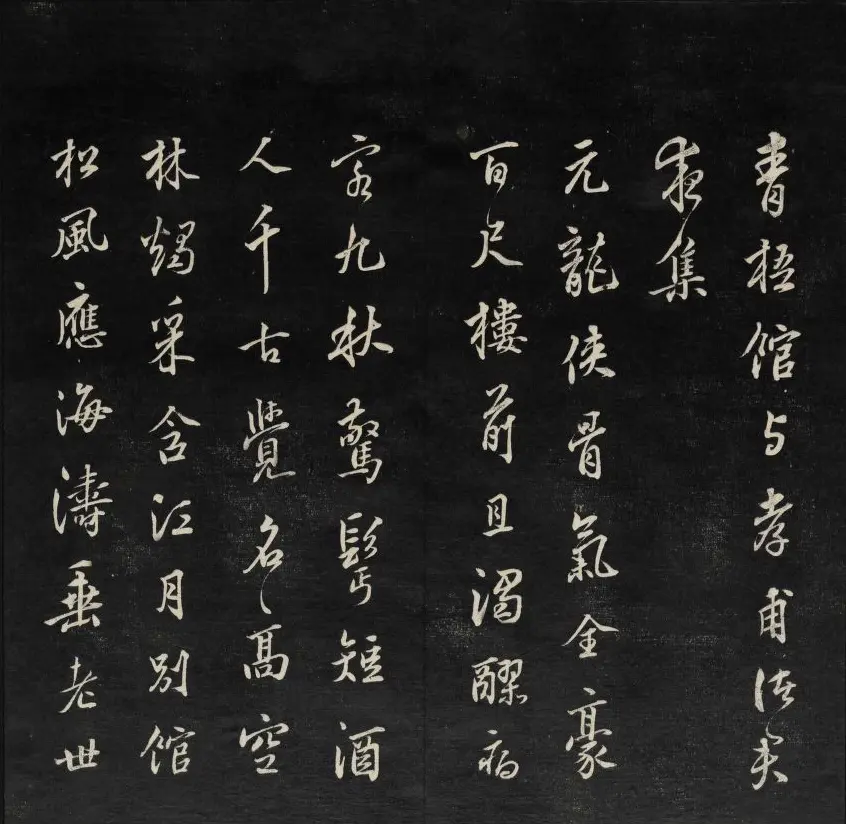 青梧館与孝甫
夜集
元龍俠骨氣全豪
百尺樓前且濁醪病
客九秋驚髩短酒
人千古覺名高空
林燭采含江月別館
松風應海濤垂老世